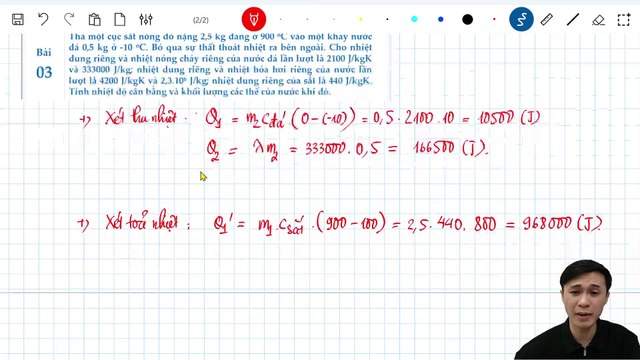 (2/2)
Thả một cục sắt nóng đỏ nặng 2,5 kg đang ở 900 °C vào một khay nước
đá 0,5 kg ở -10 °C. Bỏ qua sự thất thoát nhiệt ra bên ngoài. Cho nhiệt
dung riêng và nhiệt nóng chảy riêng của nước đá lần lượt là 2100 J/kgK
và 333000 J/kg; nhiệt dung riêng và nhiệt hóa hơi riêng của nước lần
lượt là 4200 J/kgK và 2,3.10⁶ J/kg; nhiệt dung riêng của sắt là 440 J/kgK.
Tính nhiệt độ cân bằng và khối lượng các thể của nước khi đó.
Bài
03
+) Xét thu nhiệt : Q₁ = m₂ C đá (0-(-10)) = 0,5 . 2100 . 10 = 10500 (J)
Q₂ = λm₂ = 333000 . 0,5 = 166500 (J).
+) Xét toả nhiệt : Q₁' = m₁ . C sắt . (900 - 100) = 2,5 . 440 . 800 = 968000 (J).